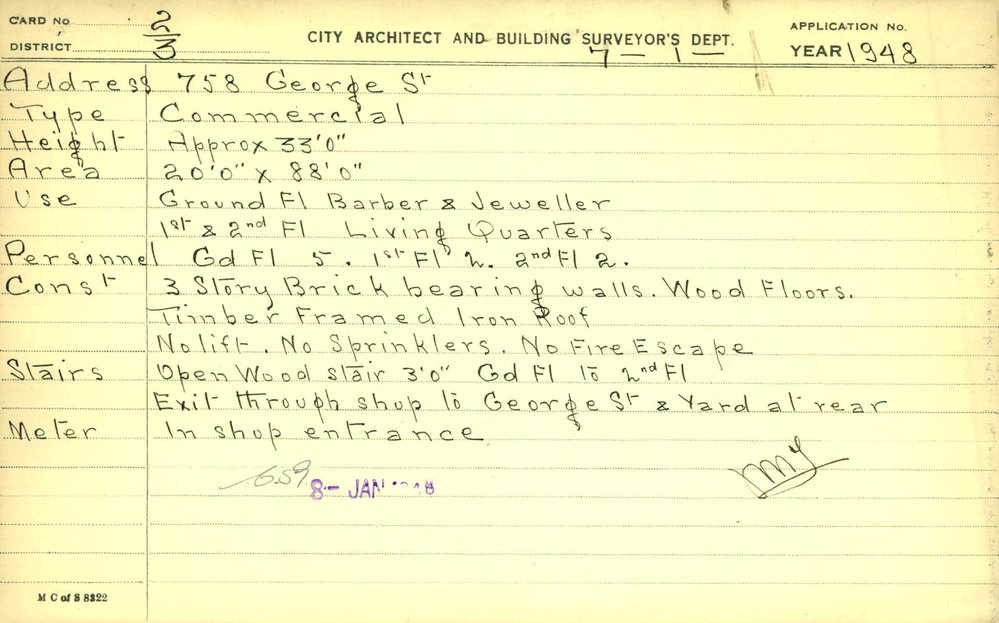 CARD No. 2/3
DISTRICT
CITY ARCHITECT AND BUILDING SURVEYOR'S DEPT.
7 – 1 –
APPLICATION No.
YEAR 1948
Address 758 George St
Type Commercial
Height Approx 33'0"
Area 20'0" x 88'0"
Use Ground Fl Barber & Jeweller
1st & 2nd Fl Living Quarters
Personnel Gd Fl 5. 1st Fl 2. 2nd Fl 2.
Const 3 Story Brick bearing walls. Wood Floors.
Timber Framed Iron Roof
No lift. No Sprinklers. No Fire Escape
Stairs Open Wood stair 3'0" Gd Fl to 2nd Fl
Exit through shop to George St & Yard at rear
Meter In shop entrance
8 – JAN
M C of S 8322